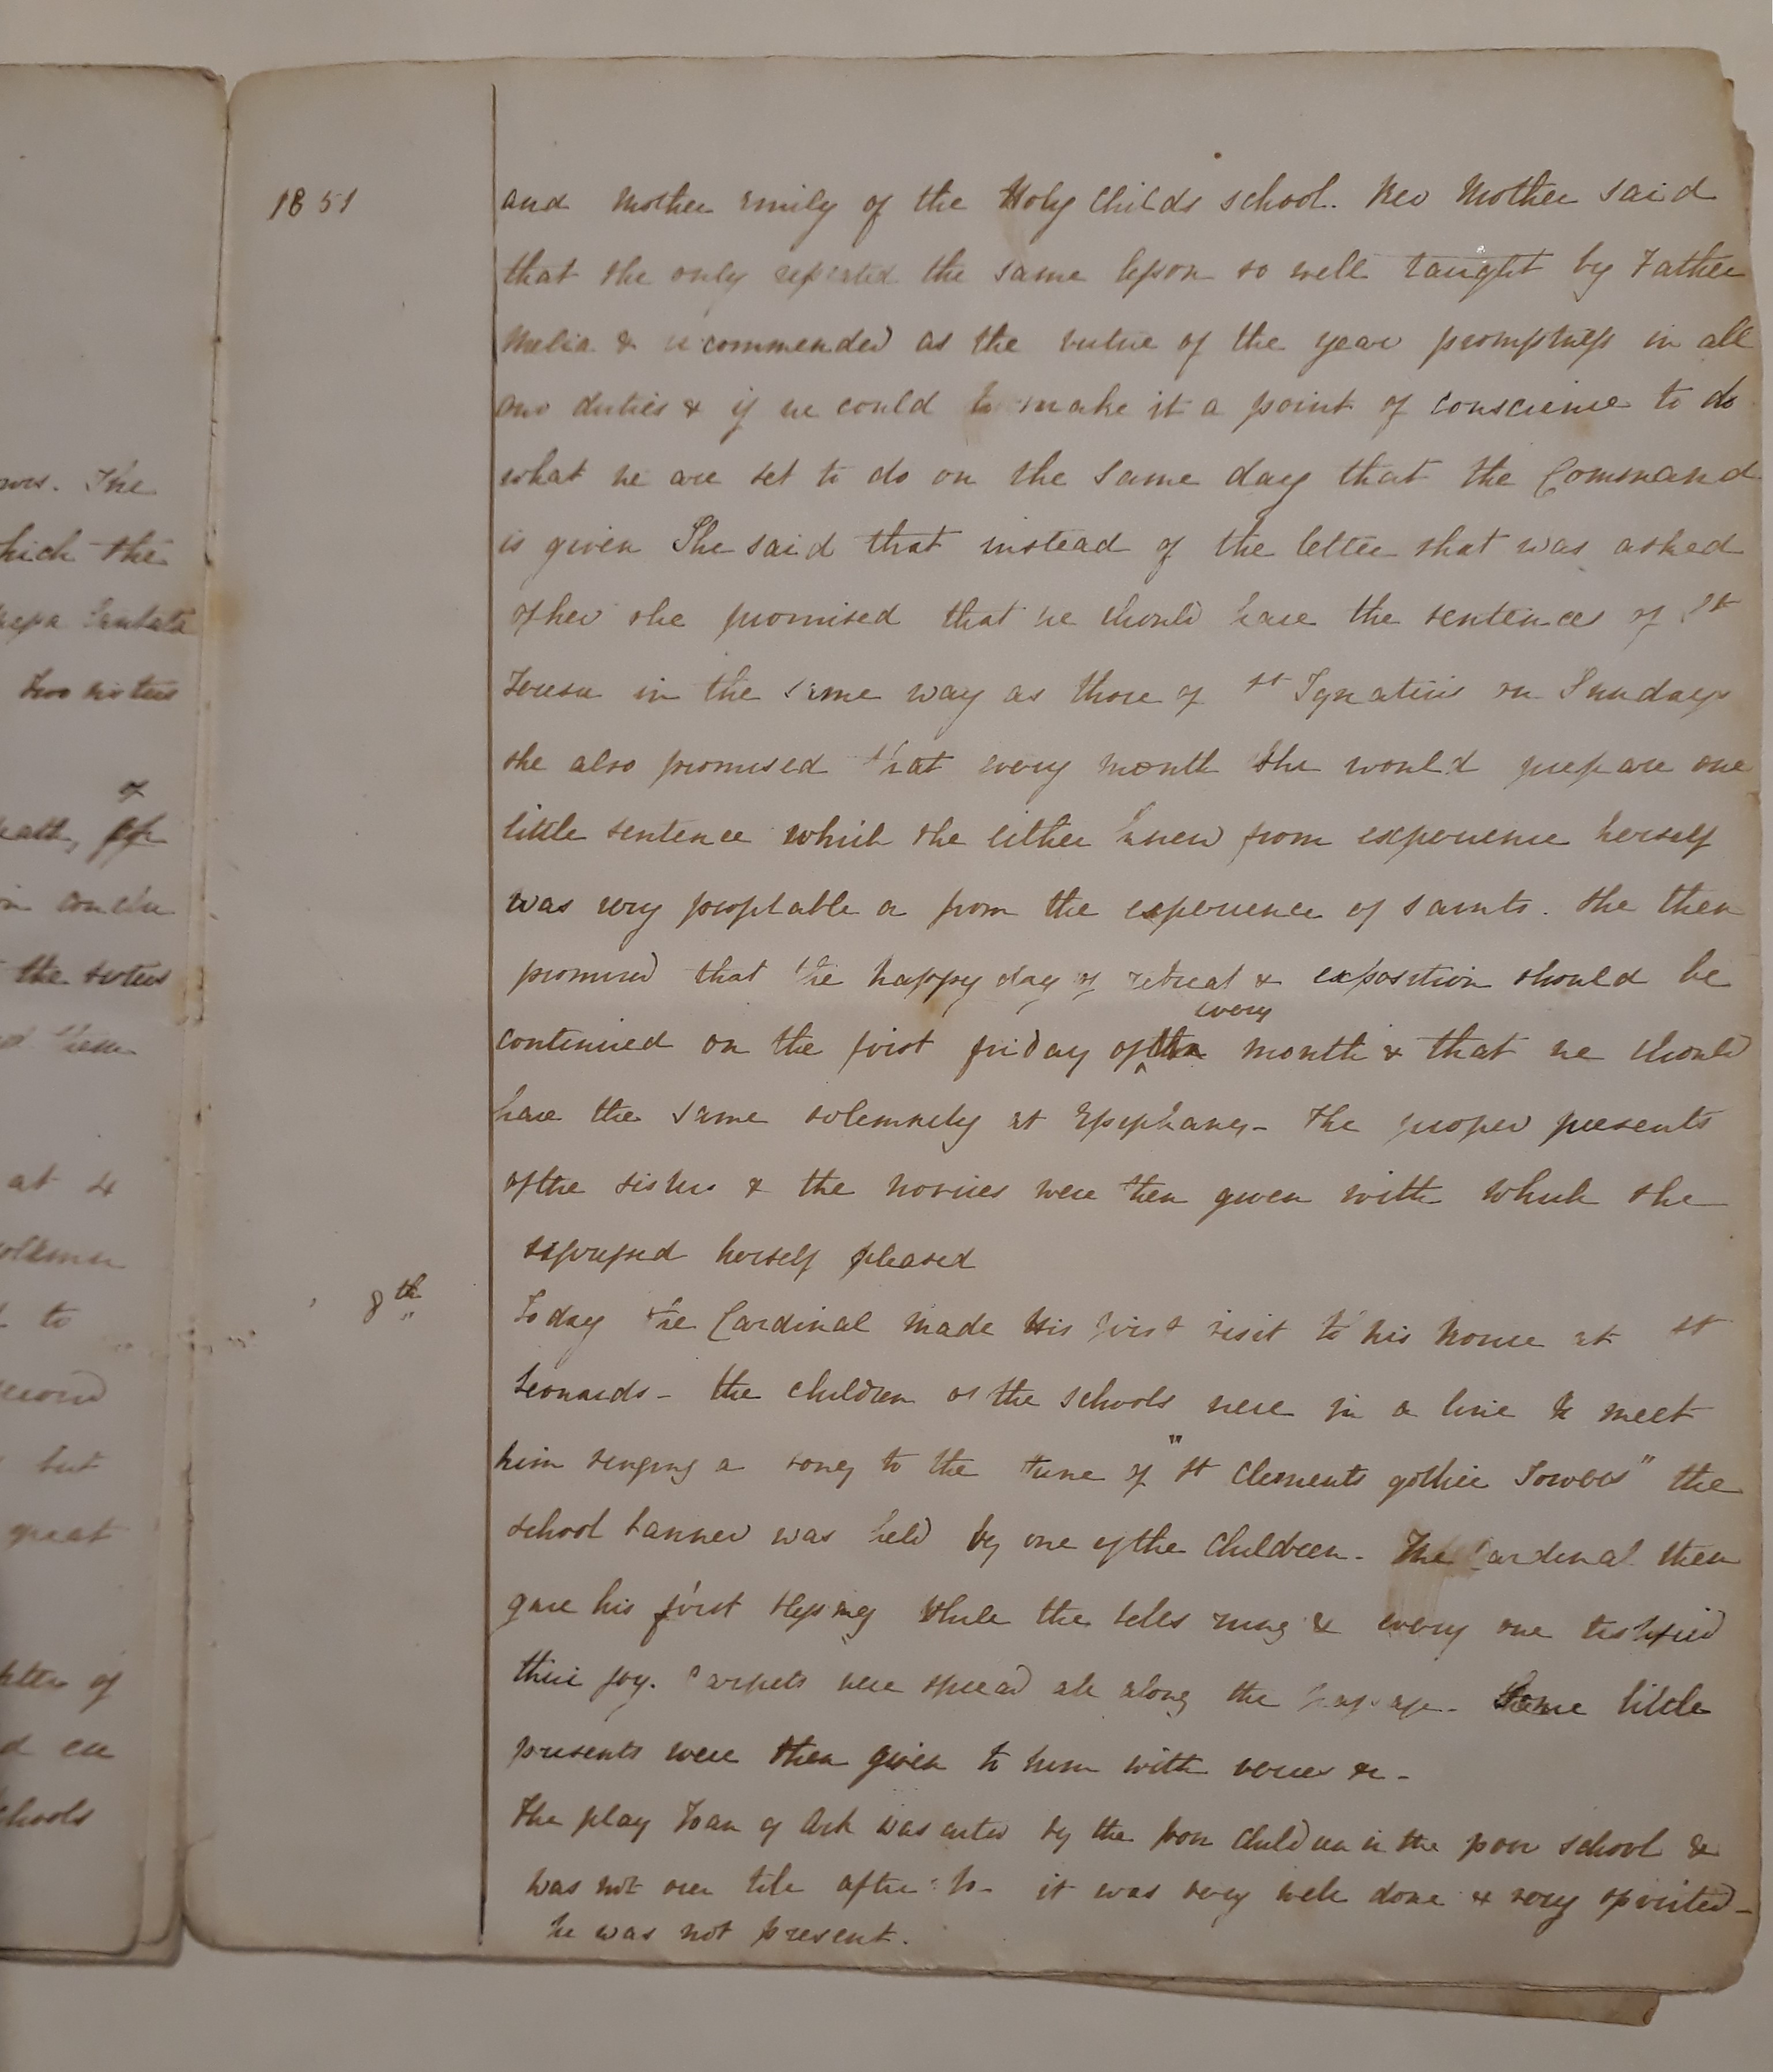 1851
and Mother Emily of the Holy Childs school. Rev Mother said
that she only repeated the same lesson so well taught by Father
Melia & recommended as the virtue of the year promptness in all
our duties & if we could to make it a point of conscience to do
what we are set to do on the same day that the Command
is given She said that instead of the letter that was asked
of her she promised that we should have the sentences of St
Teresa in the same way as those of St Ignatius on Sundays
she also promised that every month she would prepare one
little sentence which she either knew from experience herself
was very profitable or from the experience of saints. She then
promised that the happy day of retreat & exposition should be
every
continued on the first friday of the month & that we should
have the same solemnity at Epiphany - The proper presents
of the sisters & the novices were then given with which she
expressed herself pleased
8th
Today the Cardinal made his first visit to his house at St
Leonards - the children of the schools were in a line to meet
him singing a song to the tune of "St Clements gothic Towers" the
school banner was held by one of the Children - The Cardinal then
gave his first blessing while the bells rung & every one testified
their joy. Carpets were spread all along the passage - Some little
presents were then given to him with verses &c -
The play Joan of Ark was acted by the poor Children in the poor school &
was not over till after 10 - it was very well done & very spirited -
he was not present.
ows. The
hich the
Missa Cantata
two sisters
of
eath,
in conclu
the sisters
at 4
solemn
to
second
but
great
pter of
schools